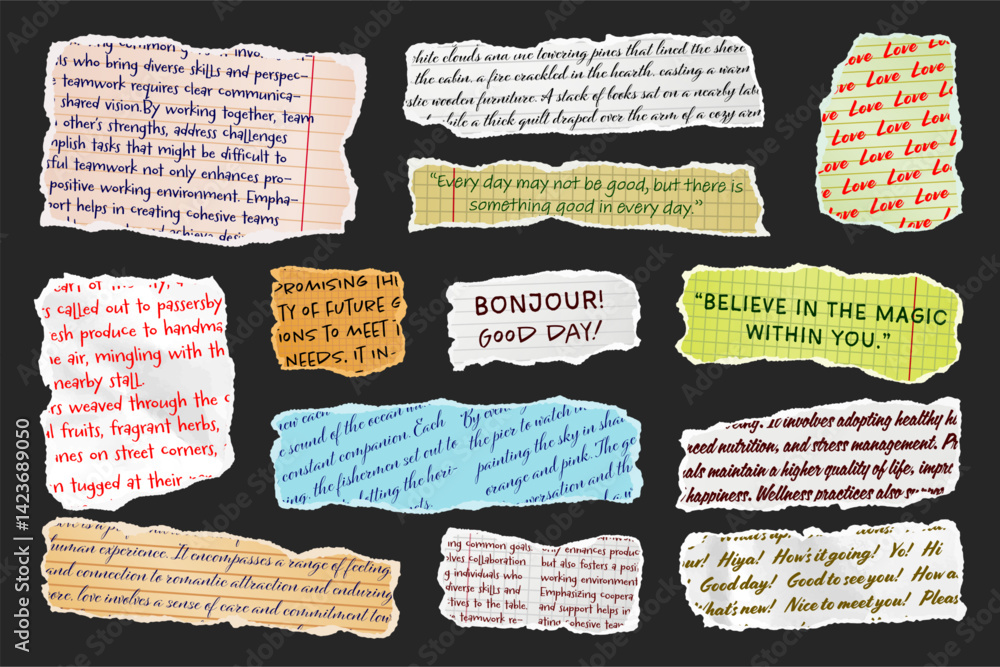 common
ls who bring diverse skills and perspec-
teamwork requires clear communica-
shared vision.By working together, team
other's strengths, address challenges
mplish tasks that might be difficult to
ful teamwork not only enhances pro-
positive working environment. Empha-
ort helps in creating cohesive teams
achieve
white clouds and the towering pines that lined the shore
the cabin, a fire crackled in the hearth, casting a warm
stic wooden furniture. A stack of books sat on a nearby tab
while a thick quilt draped over the arm of a cozy arm
"Every day may not be good, but there is
something good in every day."
Love Love Love
Love Love Love
Love Love Lo
Love Love Love
Love Love Lov
Love Love Love
Love Love Lo
Love Love Love
Love Love Lo
art of the
s called out to passersby
esh produce to handma
e air, mingling with th
nearby stall.
rs weaved through the c
l fruits, fragrant herbs,
ines on street corners,
n tugged at their
PROMISING THI
TY OF FUTURE G
IONS TO MEET
NEEDS. IT IN
BONJOUR!
GOOD DAY!
"BELIEVE IN THE MAGIC
WITHIN YOU."
new each
sound of the ocean
constant companion. Each
ing, the fishermen set out to
letting the hori-
ts.
By eveni
the pier to watch
painting the sky in sha
orange and pink. The ge
versation and
ing. It involves adopting healthy h
nced nutrition, and stress management. Pr
als maintain a higher quality of life, impro
happiness. Wellness practices also suppo
human experience. It encompasses a range of feeling
and connection to romantic attraction and enduring
ore, love involves a sense of care and commitment tow
ing common goals.
olves collaboration
g individuals who
diverse skills and
tives to the table.
teamwork re-
only enhances produc
but also fosters a posi
working environment
Emphasizing coopera
and support helps in
ating cohesive team
ur! Hiya! How's it going! Yo! Hi
Good day! Good to see you! How a
What's new! Nice to meet you! Pleas
Adobe Stock
1423689050